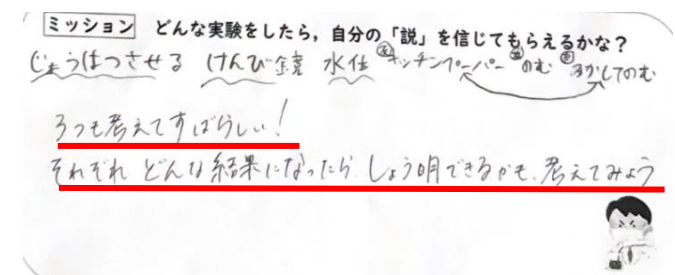 ミッション どんな実験をしたら,自分の「説」を信じてもらえるかな?
じょうはつさせる けんび鏡 水任 キッチンペーパー のむ ろかしてのむ
3つも考えてすばらしい!
それぞれ どんな結果になったら、しょう明できるかも、考えてみよう